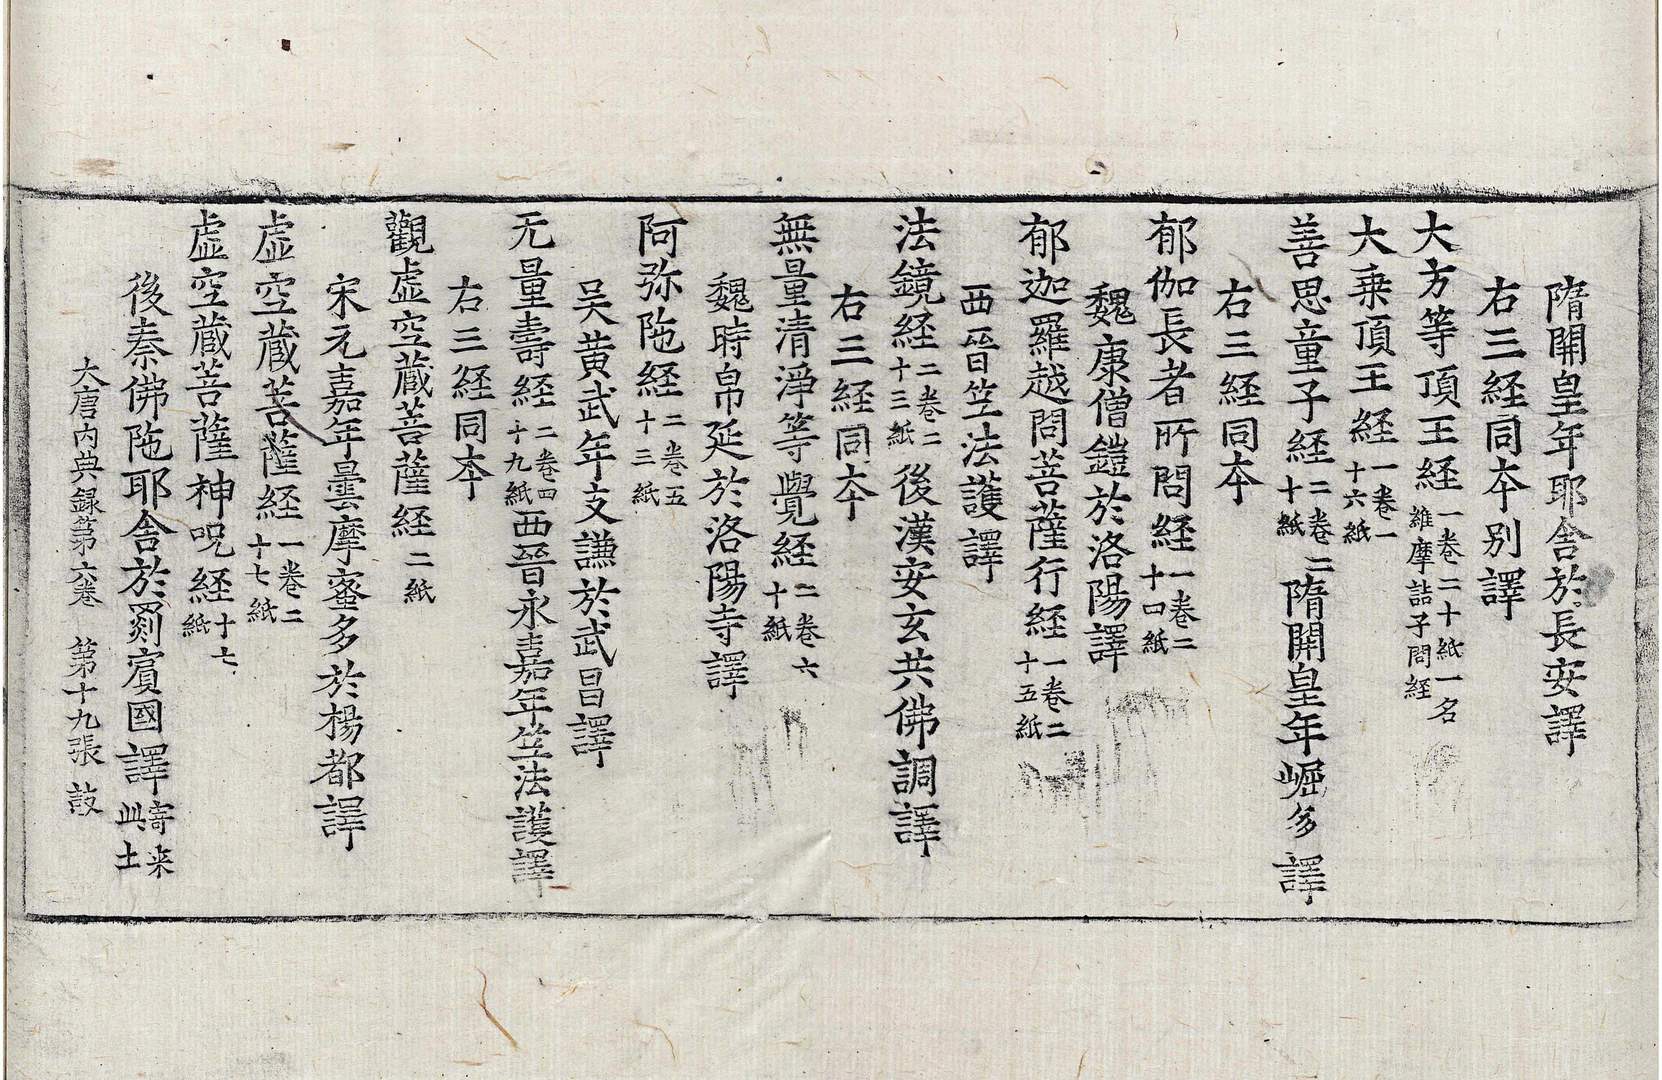 隋開皇年耶舍於長安譯
右三経同夲别譯
大方等頂王経一卷二十紙一名維摩詰子問経
大乗頂王経一卷一十六紙
善思童子経二卷二十紙隋開皇年崛多譯
右三経同夲
郁伽長者所問経一卷二十口紙
魏康僧鎧於洛陽譯
郁迦羅越問菩薩行経一卷二十五紙
西晉竺法護譯
法鏡経二卷二十三紙後漢安玄共佛調譯
右三経同夲
無量清淨等覺経二卷六十紙
魏時帛延於洛陽寺譯
阿弥陁経二卷五十三紙
吴黄武年支謙於武昌譯
无量壽経二卷四十九紙西晉永嘉年竺法護譯
右三経同夲
觀虚空蔵菩薩経二紙
宋元嘉年曇摩蜜多於楊都譯
虚空蔵菩薩経一卷二十七紙
虚空蔵菩薩神呪経十七紙
後秦佛陁耶舍於罽賓國譯寄来此土
大唐内典録第六卷 第十九張 鼓